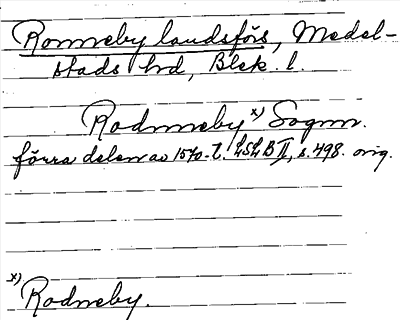 Ronneby landsförs, Medel-
stads hd, Blek. l.
Rodnneby x) Sognn.
förra delen av 1570-t. LSLB II, s. 498. orig.
x) Rodneby.